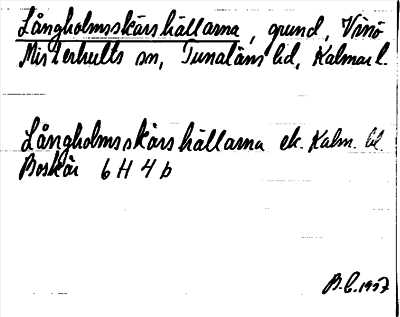 Långholmsskärshällarna, grund, Vinö
Misterhults sn, Tunaläns hd, Kalmar l.
Långholmsskärshällarna ek. Kalm. bl.
Boskär 6 H 4 b
B.C. 1957